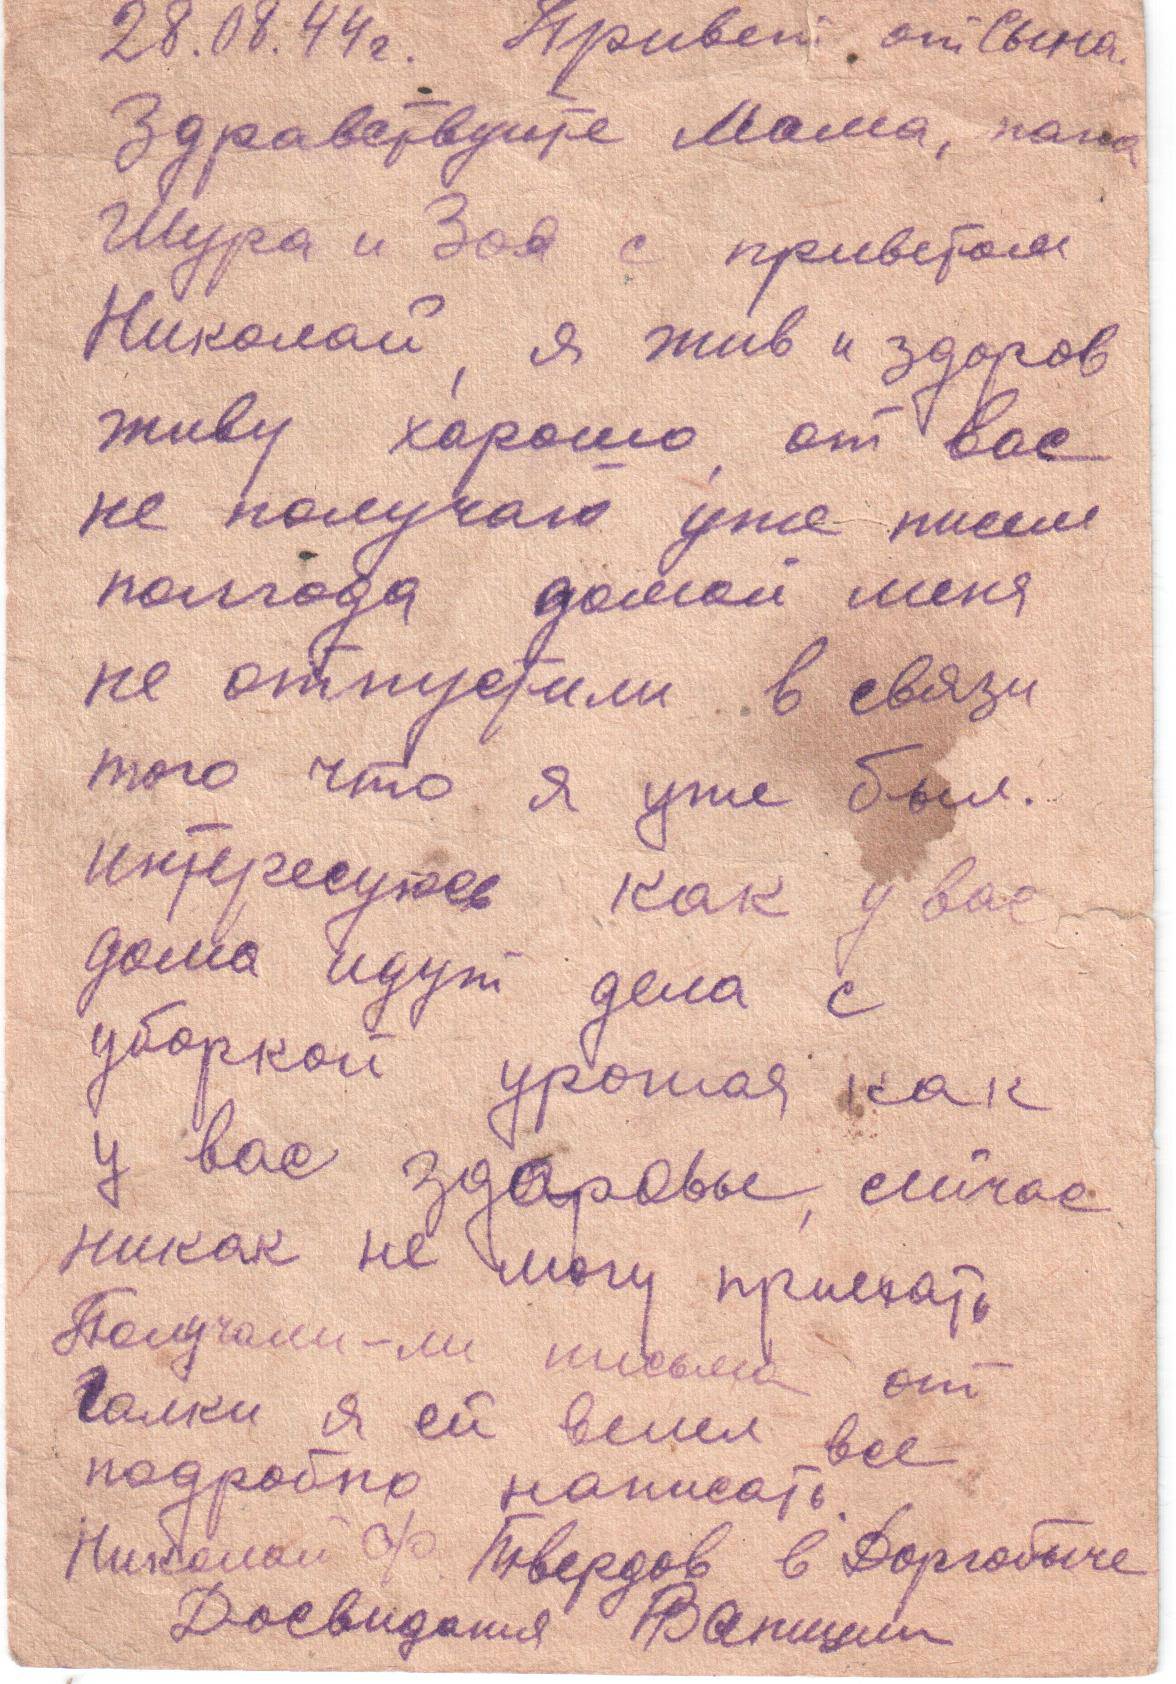 28.08.44г. Привет от Сына.
Здравствуйте Мама, папа
Шура и Зоя с приветом
Николай, я жив и здоров
живу харошо, от вас
не получаю уже писем
полгода домой меня
не отпустили в связи
того что я уже был.
интересуюсь как у вас
дома идут дела с
уборкой урожая как
у вас здоровье, сейчас
никак не могу приехать
Получали-ли письма от
Галки я ей велел все
подробно написать.
Николай Ф. Твердов в Доргобыче
Досвидания